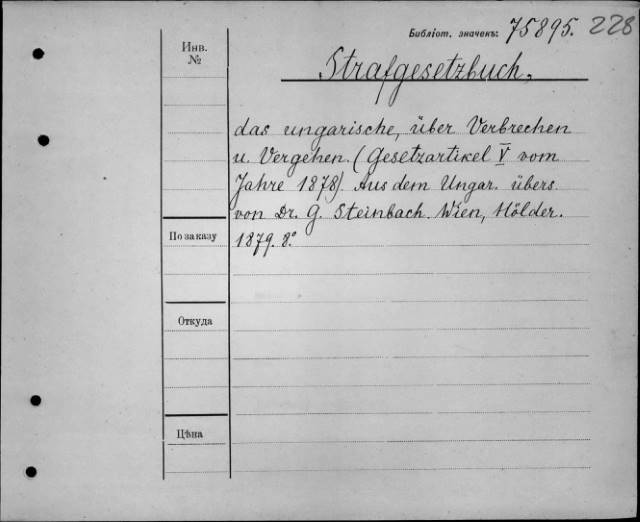 Библіот. значекъ: 75895. 228
Инв. №
Strafgesetzbuch,
das ungarische, über Verbrechen
u. Vergehen. (Gesetzartikel V vom
Jahre 1878). Aus dem Ungar. übers.
von Dr. G. Steinbach. Wien, Hölder.
По заказу
1879. 8.°
Откуда
Цѣна